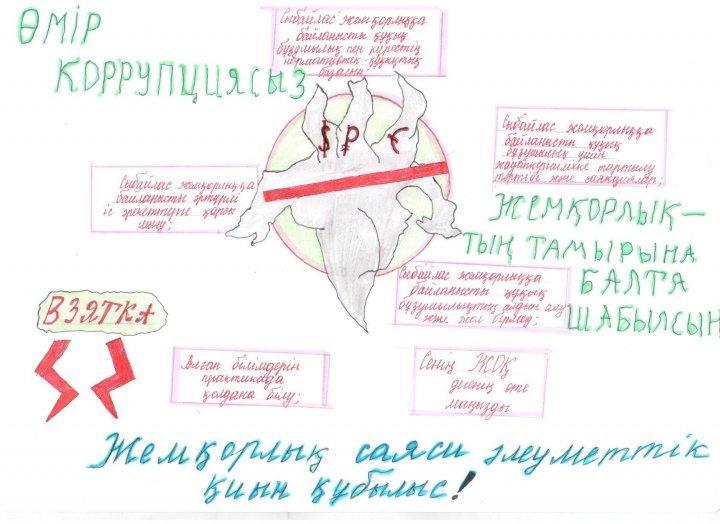 ӨМІР
КОРРУПЦИЯСЫЗ
Сыбайлас жемқорлыққа
байланысты құқық
бұзушылық пен күрестің
нормативтік-құқықтық
базасын;
$ ₽ €
Сыбайлас жемқорлыққа
байланысты құқық
бұзушылық үшін
жауапкершілікке тартылу
тәртібі және санкциялар;
Сыбайлас жемқорлыққа
байланысты әртүрлі
іс әрекеттерге қарсы
шығу;
ЖЕМҚОРЛЫҚ-
ТЫҢ ТАМЫРЫНА
БАЛТА
ШАБЫЛСЫН
Сыбайлас жемқорлыққа
байланысты құқық
бұзушылықтың алдын алу
және жол бермеу;
ВЗЯТКА
Алған білімдерін
практикада
қолдана білу;
Сенің ЖОҚ
дегенің өте
маңызды
Жемқорлық саяси әлеуметтік
қиын құбылыс!